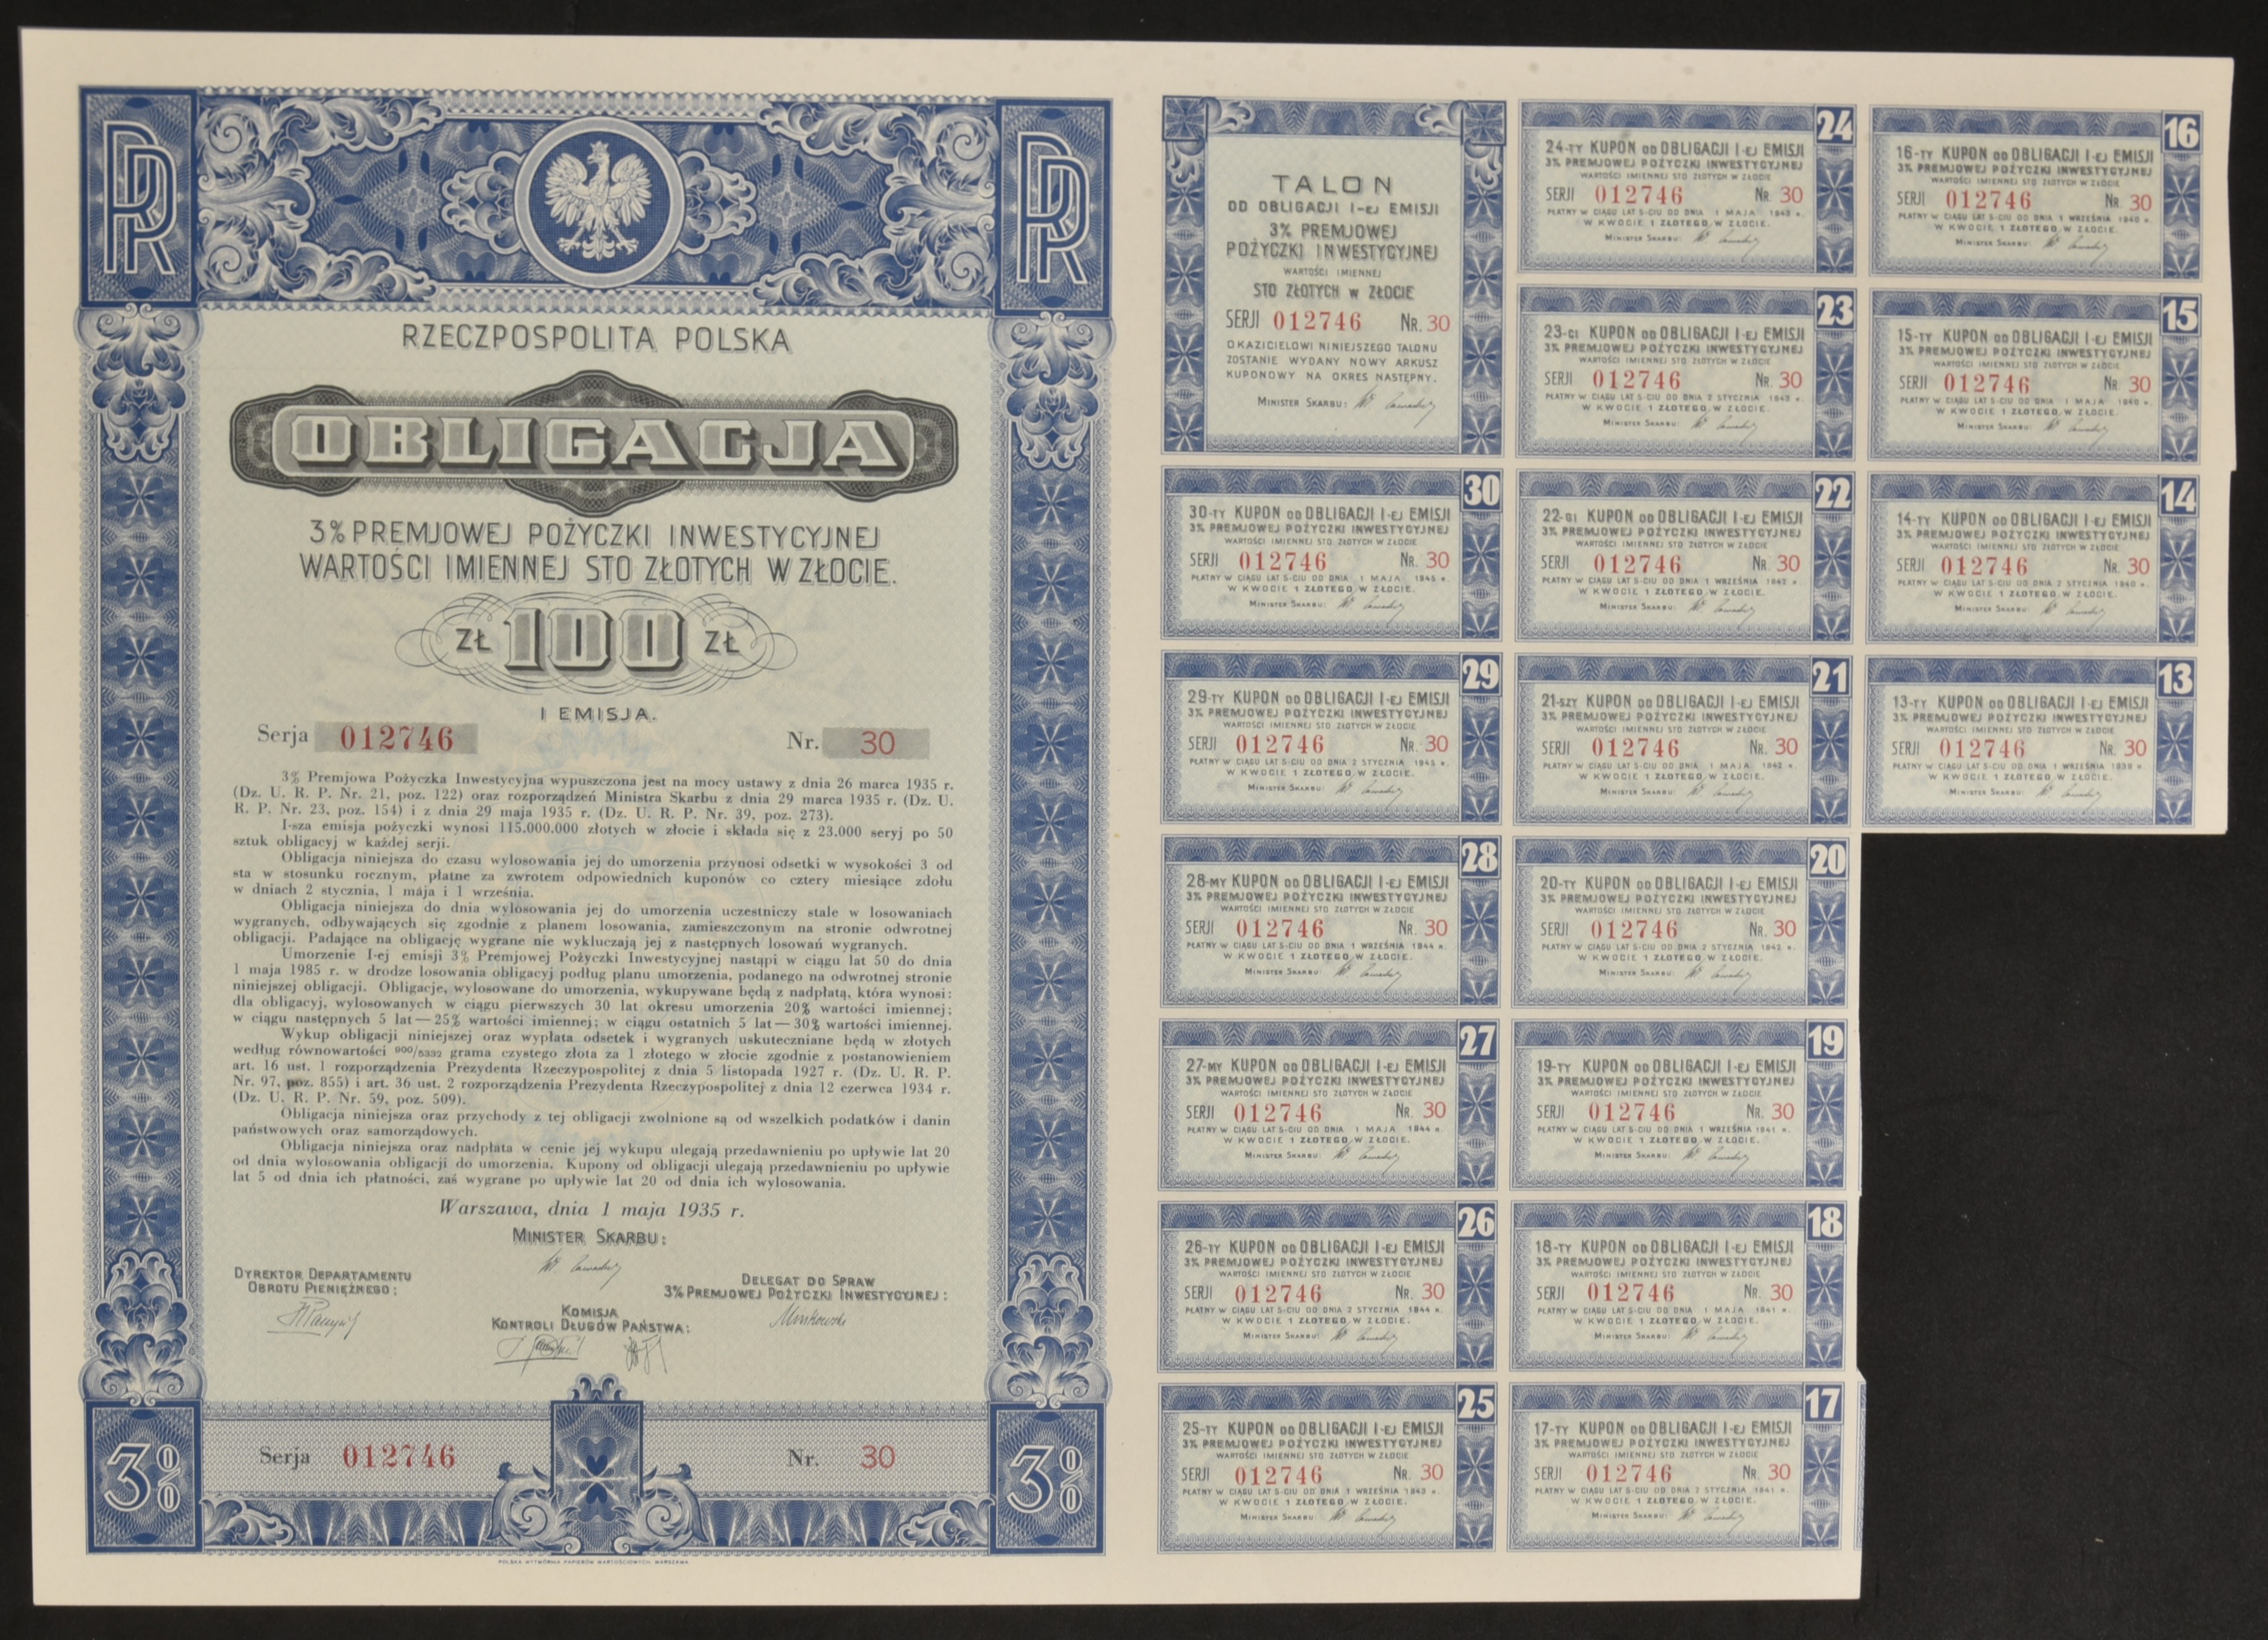 RP
RP
RZECZPOSPOLITA POLSKA
OBLIGACJA
3% PREMJOWEJ POŻYCZKI INWESTYCYJNEJ
WARTOŚCI IMIENNEJ STO ZŁOTYCH W ZŁOCIE.
ZŁ 100 ZŁ
I EMISJA.
Serja 012746 Nr. 30
3% Premjowa Pożyczka Inwestycyjna wypuszczona jest na mocy ustawy z dnia 26 marca 1935 r.
(Dz. U. R. P. Nr. 21, poz. 122) oraz rozporządzeń Ministra Skarbu z dnia 29 marca 1935 r. (Dz. U.
R. P. Nr. 23, poz. 154) i z dnia 29 maja 1935 r. (Dz. U. R. P. Nr. 39, poz. 273).
I-sza emisja pożyczki wynosi 115.000.000 złotych w złocie i składa się z 23.000 seryj po 50
sztuk obligacyj w każdej serji.
Obligacja niniejsza do czasu wylosowania jej do umorzenia przynosi odsetki w wysokości 3 od
sta w stosunku rocznym, płatne za zwrotem odpowiednich kuponów co cztery miesiące zdołu
w dniach 2 stycznia, 1 maja i 1 września.
Obligacja niniejsza do dnia wylosowania jej do umorzenia uczestniczy stale w losowaniach
wygranych, odbywających się zgodnie z planem losowania, zamieszczonym na stronie odwrotnej
obligacji. Padające na obligację wygrane nie wykluczają jej z następnych losowań wygranych.
Umorzenie I-ej emisji 3% Premjowej Pożyczki Inwestycyjnej nastąpi w ciągu lat 50 do dnia
1 maja 1985 r. w drodze losowania obligacyj podług planu umorzenia, podanego na odwrotnej stronie
niniejszej obligacji. Obligacje, wylosowane do umorzenia, wykupywane będą z nadpłatą, która wynosi:
dla obligacyj, wylosowanych w ciągu pierwszych 30 lat okresu umorzenia 20% wartości imiennej;
w ciągu następnych 5 lat — 25% wartości imiennej; w ciągu ostatnich 5 lat — 30% wartości imiennej.
Wykup obligacji niniejszej oraz wypłata odsetek i wygranych uskuteczniane będą w złotych
według równowartości 900/5332 grama czystego złota za 1 złotego w złocie zgodnie z postanowieniem
art. 16 ust. 1 rozporządzenia Prezydenta Rzeczypospolitej z dnia 5 listopada 1927 r. (Dz. U. R. P.
Nr. 97, poz. 855) i art. 36 ust. 2 rozporządzenia Prezydenta Rzeczypospolitej z dnia 12 czerwca 1934 r.
(Dz. U. R. P. Nr. 59, poz. 509).
Obligacja niniejsza oraz przychody z tej obligacji zwolnione są od wszelkich podatków i danin
państwowych oraz samorządowych.
Obligacja niniejsza oraz nadpłata w cenie jej wykupu ulegają przedawnieniu po upływie lat 20
od dnia wylosowania obligacji do umorzenia. Kupony od obligacji ulegają przedawnieniu po upływie
lat 5 od dnia ich płatności, zaś wygrane po upływie lat 20 od dnia ich wylosowania.
Warszawa, dnia 1 maja 1935 r.
MINISTER SKARBU:
DYREKTOR DEPARTAMENTU
OBROTU PIENIĘŻNEGO:
DELEGAT DO SPRAW
3% PREMJOWEJ POŻYCZKI INWESTYCYJNEJ:
KOMISJA
KONTROLI DŁUGÓW PAŃSTWA:
3% 3%
Serja 012746 Nr. 30
POLSKA WYTWÓRNIA PAPIERÓW WARTOŚCIOWYCH, WARSZAWA
TALON
OD OBLIGACJI I-EJ EMISJI
3% PREMJOWEJ
POŻYCZKI INWESTYCYJNEJ
WARTOŚCI IMIENNEJ
STO ZŁOTYCH W ZŁOCIE
SERJI 012746 NR. 30
OKAZICIELOWI NINIEJSZEGO TALONU
ZOSTANIE WYDANY NOWY ARKUSZ
KUPONOWY NA OKRES NASTĘPNY.
MINISTER SKARBU:
30
30-TY KUPON OD OBLIGACJI I-EJ EMISJI
3% PREMJOWEJ POŻYCZKI INWESTYCYJNEJ
WARTOŚCI IMIENNEJ STO ZŁOTYCH W ZŁOCIE
SERJI 012746 NR. 30
PŁATNY W CIĄGU LAT 5-CIU OD DNIA 1 MAJA 1945 R.
W KWOCIE 1 ZŁOTEGO W ZŁOCIE.
MINISTER SKARBU:
29
29-TY KUPON OD OBLIGACJI I-EJ EMISJI
3% PREMJOWEJ POŻYCZKI INWESTYCYJNEJ
WARTOŚCI IMIENNEJ STO ZŁOTYCH W ZŁOCIE
SERJI 012746 NR. 30
PŁATNY W CIĄGU LAT 5-CIU OD DNIA 2 STYCZNIA 1945 R.
W KWOCIE 1 ZŁOTEGO W ZŁOCIE.
MINISTER SKARBU:
28
28-MY KUPON OD OBLIGACJI I-EJ EMISJI
3% PREMJOWEJ POŻYCZKI INWESTYCYJNEJ
WARTOŚCI IMIENNEJ STO ZŁOTYCH W ZŁOCIE
SERJI 012746 NR. 30
PŁATNY W CIĄGU LAT 5-CIU OD DNIA 1 WRZEŚNIA 1944 R.
W KWOCIE 1 ZŁOTEGO W ZŁOCIE.
MINISTER SKARBU:
27
27-MY KUPON OD OBLIGACJI I-EJ EMISJI
3% PREMJOWEJ POŻYCZKI INWESTYCYJNEJ
WARTOŚCI IMIENNEJ STO ZŁOTYCH W ZŁOCIE
SERJI 012746 NR. 30
PŁATNY W CIĄGU LAT 5-CIU OD DNIA 1 MAJA 1944 R.
W KWOCIE 1 ZŁOTEGO W ZŁOCIE.
MINISTER SKARBU:
26
26-TY KUPON OD OBLIGACJI I-EJ EMISJI
3% PREMJOWEJ POŻYCZKI INWESTYCYJNEJ
WARTOŚCI IMIENNEJ STO ZŁOTYCH W ZŁOCIE
SERJI 012746 NR. 30
PŁATNY W CIĄGU LAT 5-CIU OD DNIA 2 STYCZNIA 1944 R.
W KWOCIE 1 ZŁOTEGO W ZŁOCIE.
MINISTER SKARBU:
25
25-TY KUPON OD OBLIGACJI I-EJ EMISJI
3% PREMJOWEJ POŻYCZKI INWESTYCYJNEJ
WARTOŚCI IMIENNEJ STO ZŁOTYCH W ZŁOCIE
SERJI 012746 NR. 30
PŁATNY W CIĄGU LAT 5-CIU OD DNIA 1 WRZEŚNIA 1943 R.
W KWOCIE 1 ZŁOTEGO W ZŁOCIE.
MINISTER SKARBU:
24
24-TY KUPON OD OBLIGACJI I-EJ EMISJI
3% PREMJOWEJ POŻYCZKI INWESTYCYJNEJ
WARTOŚCI IMIENNEJ STO ZŁOTYCH W ZŁOCIE
SERJI 012746 NR. 30
PŁATNY W CIĄGU LAT 5-CIU OD DNIA 1 MAJA 1943 R.
W KWOCIE 1 ZŁOTEGO W ZŁOCIE.
MINISTER SKARBU:
23
23-CI KUPON OD OBLIGACJI I-EJ EMISJI
3% PREMJOWEJ POŻYCZKI INWESTYCYJNEJ
WARTOŚCI IMIENNEJ STO ZŁOTYCH W ZŁOCIE
SERJI 012746 NR. 30
PŁATNY W CIĄGU LAT 5-CIU OD DNIA 2 STYCZNIA 1943 R.
W KWOCIE 1 ZŁOTEGO W ZŁOCIE.
MINISTER SKARBU:
22
22-GI KUPON OD OBLIGACJI I-EJ EMISJI
3% PREMJOWEJ POŻYCZKI INWESTYCYJNEJ
WARTOŚCI IMIENNEJ STO ZŁOTYCH W ZŁOCIE
SERJI 012746 NR. 30
PŁATNY W CIĄGU LAT 5-CIU OD DNIA 1 WRZEŚNIA 1942 R.
W KWOCIE 1 ZŁOTEGO W ZŁOCIE.
MINISTER SKARBU:
21
21-SZY KUPON OD OBLIGACJI I-EJ EMISJI
3% PREMJOWEJ POŻYCZKI INWESTYCYJNEJ
WARTOŚCI IMIENNEJ STO ZŁOTYCH W ZŁOCIE
SERJI 012746 NR. 30
PŁATNY W CIĄGU LAT 5-CIU OD DNIA 1 MAJA 1942 R.
W KWOCIE 1 ZŁOTEGO W ZŁOCIE.
MINISTER SKARBU:
20
20-TY KUPON OD OBLIGACJI I-EJ EMISJI
3% PREMJOWEJ POŻYCZKI INWESTYCYJNEJ
WARTOŚCI IMIENNEJ STO ZŁOTYCH W ZŁOCIE
SERJI 012746 NR. 30
PŁATNY W CIĄGU LAT 5-CIU OD DNIA 2 STYCZNIA 1942 R.
W KWOCIE 1 ZŁOTEGO W ZŁOCIE.
MINISTER SKARBU:
19
19-TY KUPON OD OBLIGACJI I-EJ EMISJI
3% PREMJOWEJ POŻYCZKI INWESTYCYJNEJ
WARTOŚCI IMIENNEJ STO ZŁOTYCH W ZŁOCIE
SERJI 012746 NR. 30
PŁATNY W CIĄGU LAT 5-CIU OD DNIA 1 WRZEŚNIA 1941 R.
W KWOCIE 1 ZŁOTEGO W ZŁOCIE.
MINISTER SKARBU:
18
18-TY KUPON OD OBLIGACJI I-EJ EMISJI
3% PREMJOWEJ POŻYCZKI INWESTYCYJNEJ
WARTOŚCI IMIENNEJ STO ZŁOTYCH W ZŁOCIE
SERJI 012746 NR. 30
PŁATNY W CIĄGU LAT 5-CIU OD DNIA 1 MAJA 1941 R.
W KWOCIE 1 ZŁOTEGO W ZŁOCIE.
MINISTER SKARBU:
17
17-TY KUPON OD OBLIGACJI I-EJ EMISJI
3% PREMJOWEJ POŻYCZKI INWESTYCYJNEJ
WARTOŚCI IMIENNEJ STO ZŁOTYCH W ZŁOCIE
SERJI 012746 NR. 30
PŁATNY W CIĄGU LAT 5-CIU OD DNIA 2 STYCZNIA 1941 R.
W KWOCIE 1 ZŁOTEGO W ZŁOCIE.
MINISTER SKARBU:
16
16-TY KUPON OD OBLIGACJI I-EJ EMISJI
3% PREMJOWEJ POŻYCZKI INWESTYCYJNEJ
WARTOŚCI IMIENNEJ STO ZŁOTYCH W ZŁOCIE
SERJI 012746 NR. 30
PŁATNY W CIĄGU LAT 5-CIU OD DNIA 1 WRZEŚNIA 1940 R.
W KWOCIE 1 ZŁOTEGO W ZŁOCIE.
MINISTER SKARBU:
15
15-TY KUPON OD OBLIGACJI I-EJ EMISJI
3% PREMJOWEJ POŻYCZKI INWESTYCYJNEJ
WARTOŚCI IMIENNEJ STO ZŁOTYCH W ZŁOCIE
SERJI 012746 NR 30
PŁATNY W CIĄGU LAT 5-CIU OD DNIA 1 MAJA 1940 R.
W KWOCIE 1 ZŁOTEGO W ZŁOCIE.
MINISTER SKARBU:
14
14-TY KUPON OD OBLIGACJI I-EJ EMISJI
3% PREMJOWEJ POŻYCZKI INWESTYCYJNEJ
WARTOŚCI IMIENNEJ STO ZŁOTYCH W ZŁOCIE
SERJI 012746 NR. 30
PŁATNY W CIĄGU LAT 5-CIU OD DNIA 2 STYCZNIA 1940 R.
W KWOCIE 1 ZŁOTEGO W ZŁOCIE.
MINISTER SKARBU:
13
13-TY KUPON OD OBLIGACJI I-EJ EMISJI
3% PREMJOWEJ POŻYCZKI INWESTYCYJNEJ
WARTOŚCI IMIENNEJ STO ZŁOTYCH W ZŁOCIE
SERJI 012746 NR. 30
PŁATNY W CIĄGU LAT 5-CIU OD DNIA 1 WRZEŚNIA 1939 R.
W KWOCIE 1 ZŁOTEGO W ZŁOCIE.
MINISTER SKARBU: